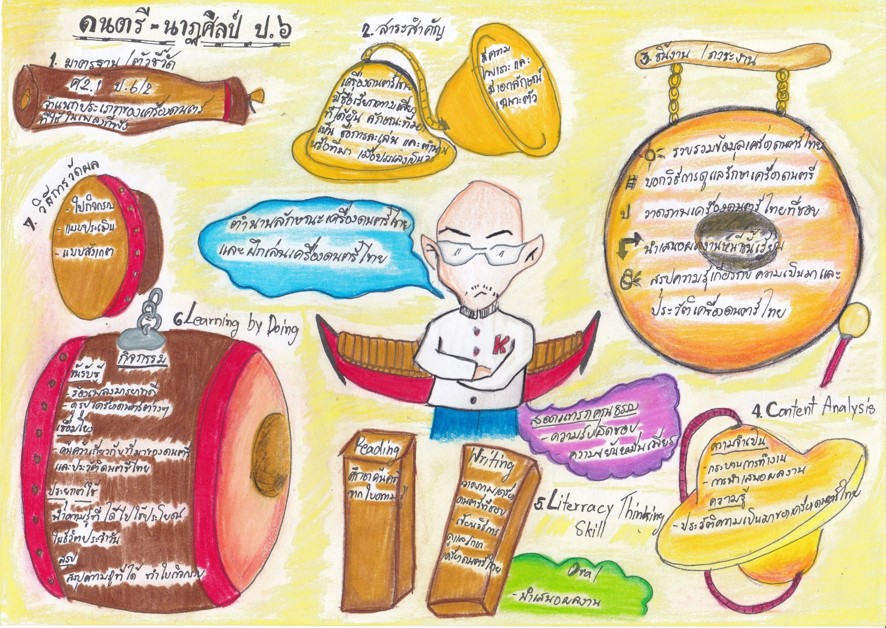 ดนตรี - นาฏศิลป์ ป.๖
1. มาตรฐาน / ตัวชี้วัด
ศ 2.1 ป.6/2
จำแนกประเภทของเครื่องดนตรี
2. สาระสำคัญ
เครื่องดนตรีไทย
มีความ
ไพเราะ และ
มีเอกลักษณ์
เฉพาะตัว
3. ชิ้นงาน / ภาระงาน
รวบรวมข้อมูลเครื่องดนตรีไทย
บอกวิธีการดูแลรักษาเครื่องดนตรี
วาดภาพเครื่องดนตรีไทยที่ชอบ
นำเสนอผลงานหน้าชั้นเรียน
สรุปความรู้เกี่ยวกับ ความเป็นมาและ
ประวัติเครื่องดนตรีไทย
7. วิธีการวัดผล
- ใบกิจกรรม
- แบบประเมิน
- แบบสังเกต
ตำนานลักษณะเครื่องดนตรีไทย
และฝึกเล่นเครื่องดนตรีไทย
K
6 Learning by Doing
กิจกรรม
- ร้องเพลง
เชื่อมโยง
และประวัติดนตรีไทย
ประยุกต์ใช้
นำความรู้ที่ได้ไปใช้ประโยชน์
ในชีวิตประจำวัน
สรุป
สรุปความรู้ที่ได้ ทำใบกิจกรรม
สอดแทรกคุณธรรม
- ความรับผิดชอบ
4. Content Analysis
ความจำเป็น
- กระบวนการทำงาน
- การนำเสนอผลงาน
ความรู้
- ประวัติความเป็นมาของเครื่องดนตรีไทย
5. Literracy Thinking
Skill
Reading
จากใบความรู้
Writing
วาดภาพเครื่อง
ดนตรีที่ชอบ
เขียนวิธีการ
ดูแลรักษา
เครื่องดนตรีไทย
Oral
- นำเสนอผลงาน